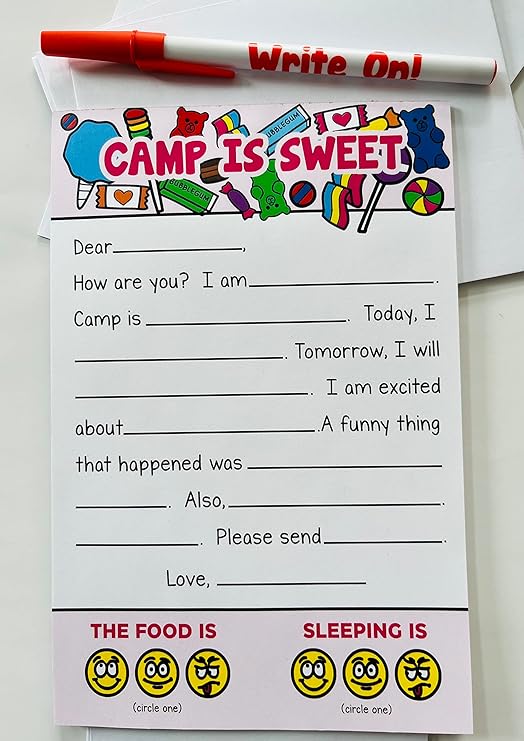 Write On!
BUBBLEGUM
CAMP IS SWEET
BUBBLEGUM
Dear______________,
How are you? I am____________________.
Camp is ______________________. Today, I
______________________. Tomorrow, I will
________________________. I am excited
about____________________.A funny thing
that happened was ____________________
__________. Also,______________________.
____________. Please send____________.
Love, ________________
THE FOOD IS SLEEPING IS
(circle one) (circle one)